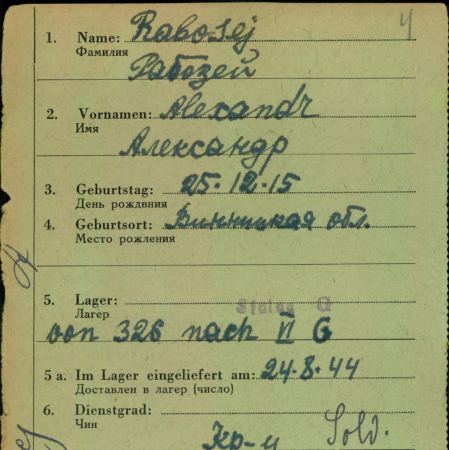 4
1. Name: Rabosej
Фамилия
Рабозей
2. Vornamen: Alexandr
Имя
Александр
3. Geburtstag: 25.12.15
День рождвния
4. Geburtsort: Винницкая обл.
Место рожления
5. Lager: Stalag G
Лагер
von 326 nach VI G
5 a. Im Lager eingeliefert am: 24.8.44
Доставлен в лагер (число)
6. Dienstgrad: Sold.
Чин
Кр-ц